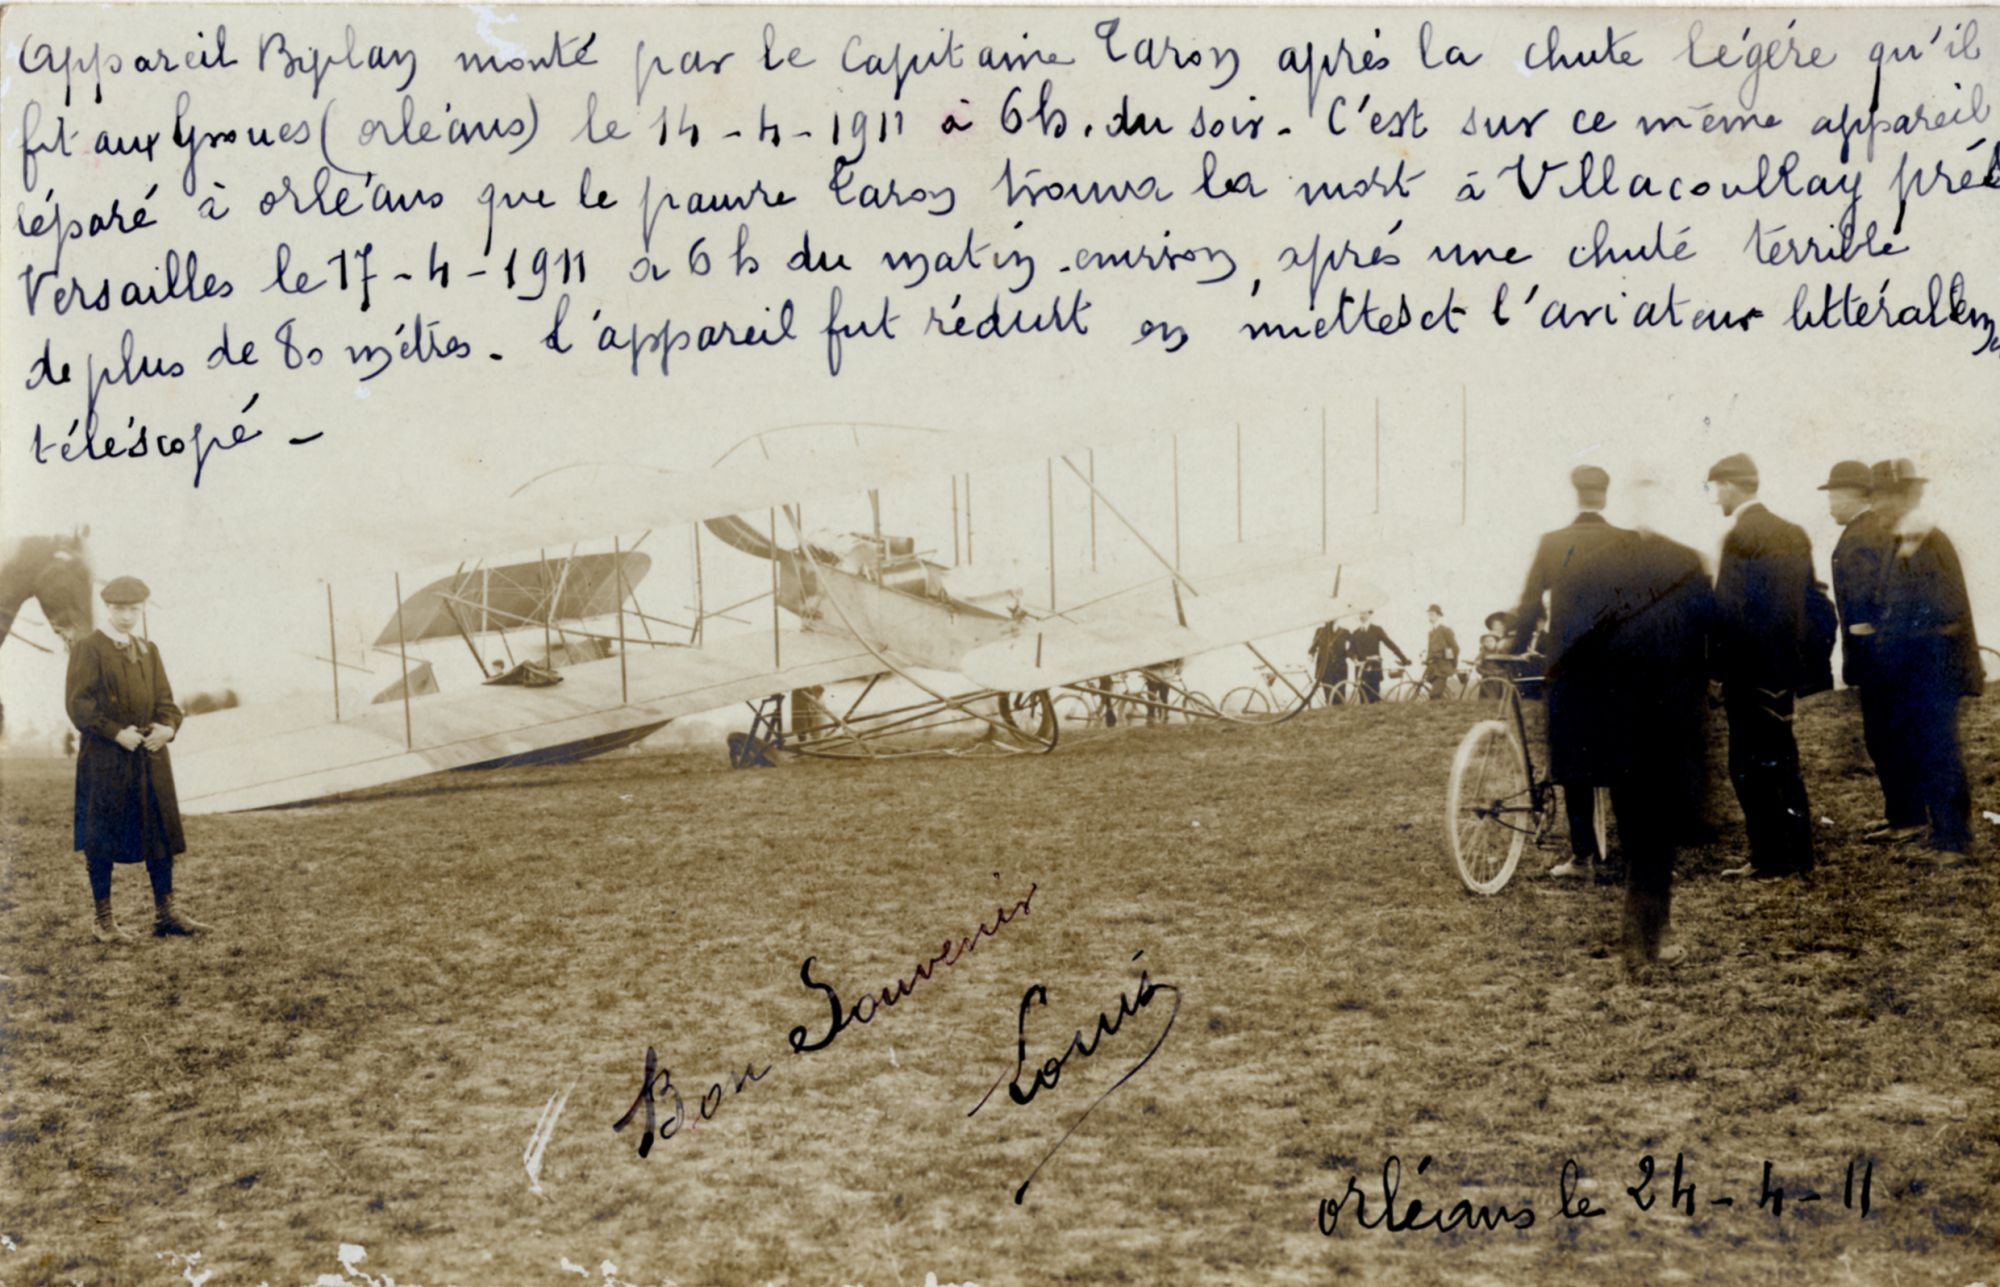 Appareil Biplan monté par le Capitaine Taron après la chute légére qu'il
fit aux Groues (orléans) le 14-4-1911 à 6h. du soir. C'est sur ce même appareil
réparé à orléans que le pauvre Taron trouva la mort à Villacoublay prés
Versailles le 17-4-1911 à 6h du matin environ, aprés une chute térrible
de plus de 80 métres. L'appareil fut réduit en miettes et l'aviateur littéralem
téléscopé -
Bon Souvenir
Louis
orléans le 24-4-11